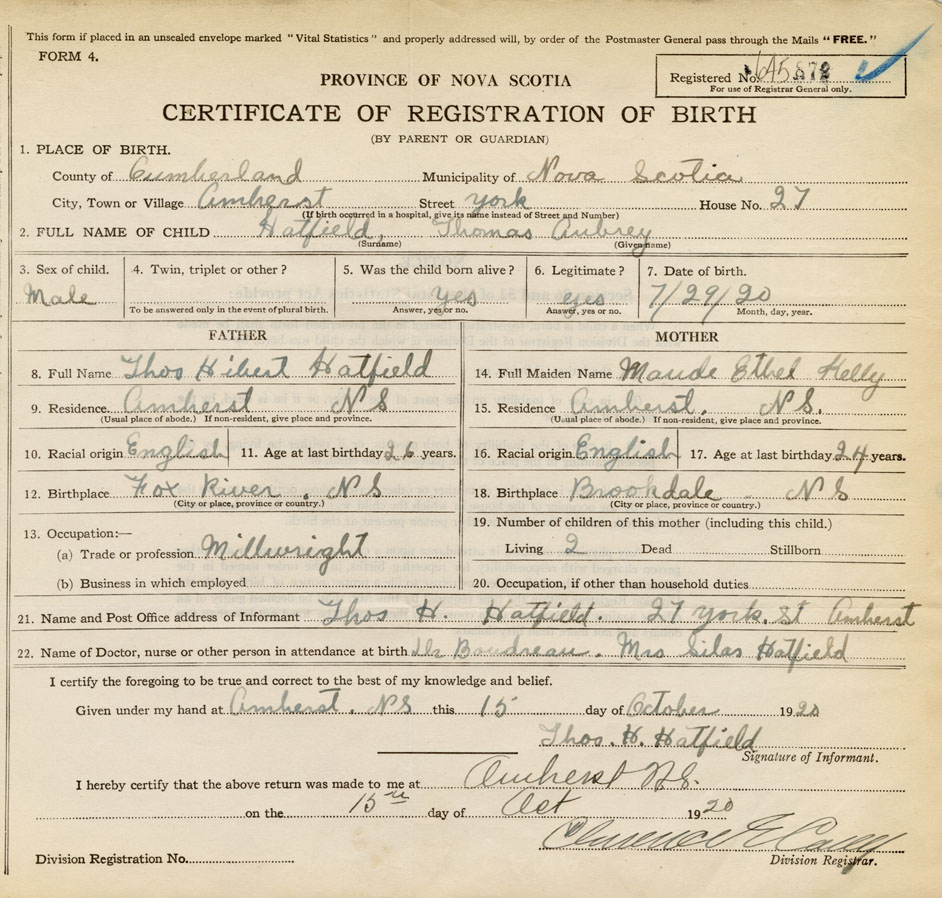 This form if placed in an unsealed envelope marked "Vital Statistics" and properly addressed will, by order of the Postmaster General pass through the Mails "FREE."
FORM 4.
PROVINCE OF NOVA SCOTIA
Registered No. 645872
For use of Registrar General only.
CERTIFICATE OF REGISTRATION OF BIRTH
(BY PARENT OR GUARDIAN)
1. PLACE OF BIRTH.
County of Cumberland Municipality of Nova Scotia
City, Town or Village Amherst Street york House No. 27
(If birth occurred in a hospital, give its name instead of Street and Number)
2. FULL NAME OF CHILD Hatfield, Thomas Aubrey
(Surname) (Given name)
3. Sex of child. 4. Twin, triplet or other? 5. Was the child born alive? 6. Legitimate? 7. Date of birth.
Male yes yes 7/29/20
To be answered only in the event of plural birth. Answer, yes or no. Answer, yes or no. Month, day, year.
FATHER MOTHER
8. Full Name Thos Hibert Hatfield 14. Full Maiden Name Maude Ethel Kelly
9. Residence. Amherst NS 15. Residence Amherst. NS.
(Usual place of abode.) If non-resident, give place and province. (Usual place of abode.) If non-resident, give place and province.
10. Racial origin English 11. Age at last birthday 26 years. 16. Racial origin English 17. Age at last birthday. 24 years.
12. Birthplace Fox River. NS 18. Birthplace Brookdale. NS
(City or place, province or country.) (City or place, province or country.)
13. Occupation:— 19. Number of children of this mother (including this child.)
(a) Trade or profession Millwright Living 2 Dead Stillborn
(b) Business in which employed 20. Occupation, if other than household duties
21. Name and Post Office address of Informant Thos H. Hatfield. 27 york. St Amherst
22. Name of Doctor, nurse or other person in attendance at birth Dr Boudreau. Mrs Silas Hatfield
I certify the foregoing to be true and correct to the best of my knowledge and belief.
Given under my hand at Amherst. NS this 15 day of October 1920
Thos. H. Hatfield
Signature of Informant.
I hereby certify that the above return was made to me at Amherst N.S.
on the 15th day of Oct 1920
Clarence E
Division Registrar.
Division Registration No.